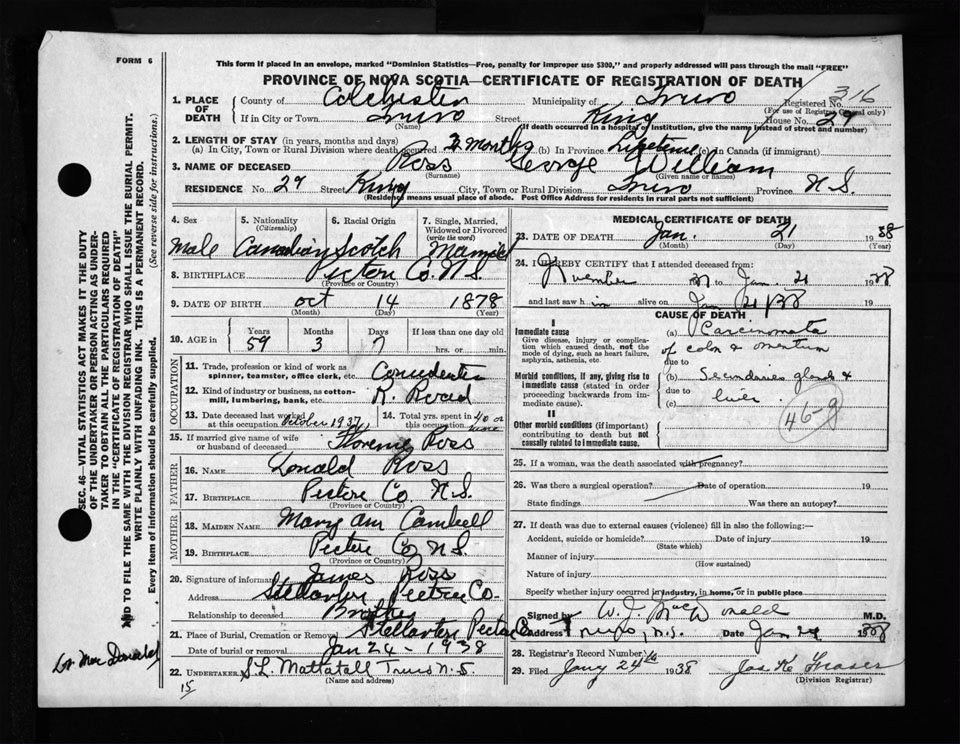 FORM 6
This form if placed in an envelope, marked "Dominion Statistics—Free, penalty for improper use $300," and properly addressed will pass through the mail "FREE"
PROVINCE OF NOVA SCOTIA—CERTIFICATE OF REGISTRATION OF DEATH
316
1. PLACE OF DEATH County of Colchester Municipality of Truro Registered No.
(For use of Registrar General only)
If in City or Town Truro Street King House No. 29
(Name) (If death occurred in a hospital or institution, give the name instead of street and number)
2. LENGTH OF STAY (in years, months and days)
(a) In City, Town or Rural Division where death occurred 3 months (b) In Province Lifetime (c) in Canada (if immigrant)
3. NAME OF DECEASED Ross George William
(Surname) (Given name or names)
RESIDENCE No. 29 Street King City, Town or Rural Division Truro Province N.S.
(Residence means usual place of abode. Post Office Address for residents in rural parts not sufficient)
4. Sex 5. Nationality (Citizenship) 6. Racial Origin 7. Single, Married, Widowed or Divorced (write the word)
Male Canadian Scotch Married
8. BIRTHPLACE Pictou Co. N.S.
(Province or Country)
9. DATE OF BIRTH Oct 14 1878
(Month) (Day) (Year)
10. AGE in Years Months Days If less than one day old
59 3 7 hrs. or min.
OCCUPATION
11. Trade, profession or kind of work as spinner, teamster, office clerk, etc.
12. Kind of industry or business, as cotton-mill, lumbering, bank, etc. R. Road
13. Date deceased last worked at this occupation October 1937 14. Total yrs. spent in this occupation 40 or more
15. If married give name of wife or husband of deceased Florence Ross
FATHER
16. NAME Donald Ross
17. BIRTHPLACE Pictou Co. N.S.
(Province or Country)
MOTHER
18. MAIDEN NAME Mary Ann Cambell
19. BIRTHPLACE Pictou Co. N.S.
(Province or Country)
20. Signature of informant James Ross
Address Stellarton Pictou Co.
Relationship to deceased Brother
21. Place of Burial, Cremation or Removal Stellarton Pictou Co
Date of burial or removal Jan 24 - 1938
22. UNDERTAKER S.L. Mattatall Truro N.S
(Name and address)
MEDICAL CERTIFICATE OF DEATH
23. DATE OF DEATH Jan. 21 1938
(Month) (Day) (Year)
24. I HEREBY CERTIFY that I attended deceased from:
November 37 to Jan. 21 1938
and last saw him alive on Jan 21/38 19
CAUSE OF DEATH
I
Immediate cause (a) Carcinomata
Give disease, injury or complication which caused death, not the mode of dying, such as heart failure, asphyxia, asthenia, etc. of colon & omentum
due to
Morbid conditions, if any, giving rise to immediate cause (stated in order proceeding backwards from immediate cause). (b) Secondaries glands &
due to liver
(c)
46-g
II
Other morbid conditions (if important) contributing to death but not causally related to immediate cause.
25. If a woman, was the death associated with pregnancy?
26. Was there a surgical operation? Date of operation 19
State findings Was there an autopsy?
27. If death was due to external causes (violence) fill in also the following:—
Accident, suicide or homicide? Date of injury 19
(State which)
Manner of injury
(How sustained)
Nature of injury
Specify whether injury occurred in industry, in home, or in public place
Signed by W. J. MacDonald M.D.
Address Truro, N.S. Date Jan 24 1938
28. Registrar's Record Number
29. Filed Jany 24th 1938 Jas K. Fraser
(Division Registrar)
SEC. 46—VITAL STATISTICS ACT MAKES IT THE DUTY
OF THE UNDERTAKER OR PERSON ACTING AS UNDER-
TAKER TO OBTAIN ALL THE PARTICULARS REQUIRED
IN THE "CERTIFICATE OF REGISTRATION OF DEATH"
AND TO FILE THE SAME WITH THE DIVISION REGISTRAR WHO SHALL ISSUE THE BURIAL PERMIT.
WRITE PLAINLY WITH UNFADING INK. THIS IS A PERMANENT RECORD.
Every item of information should be carefully supplied. (See reverse side for instructions.)
Dr Mac Donald
15